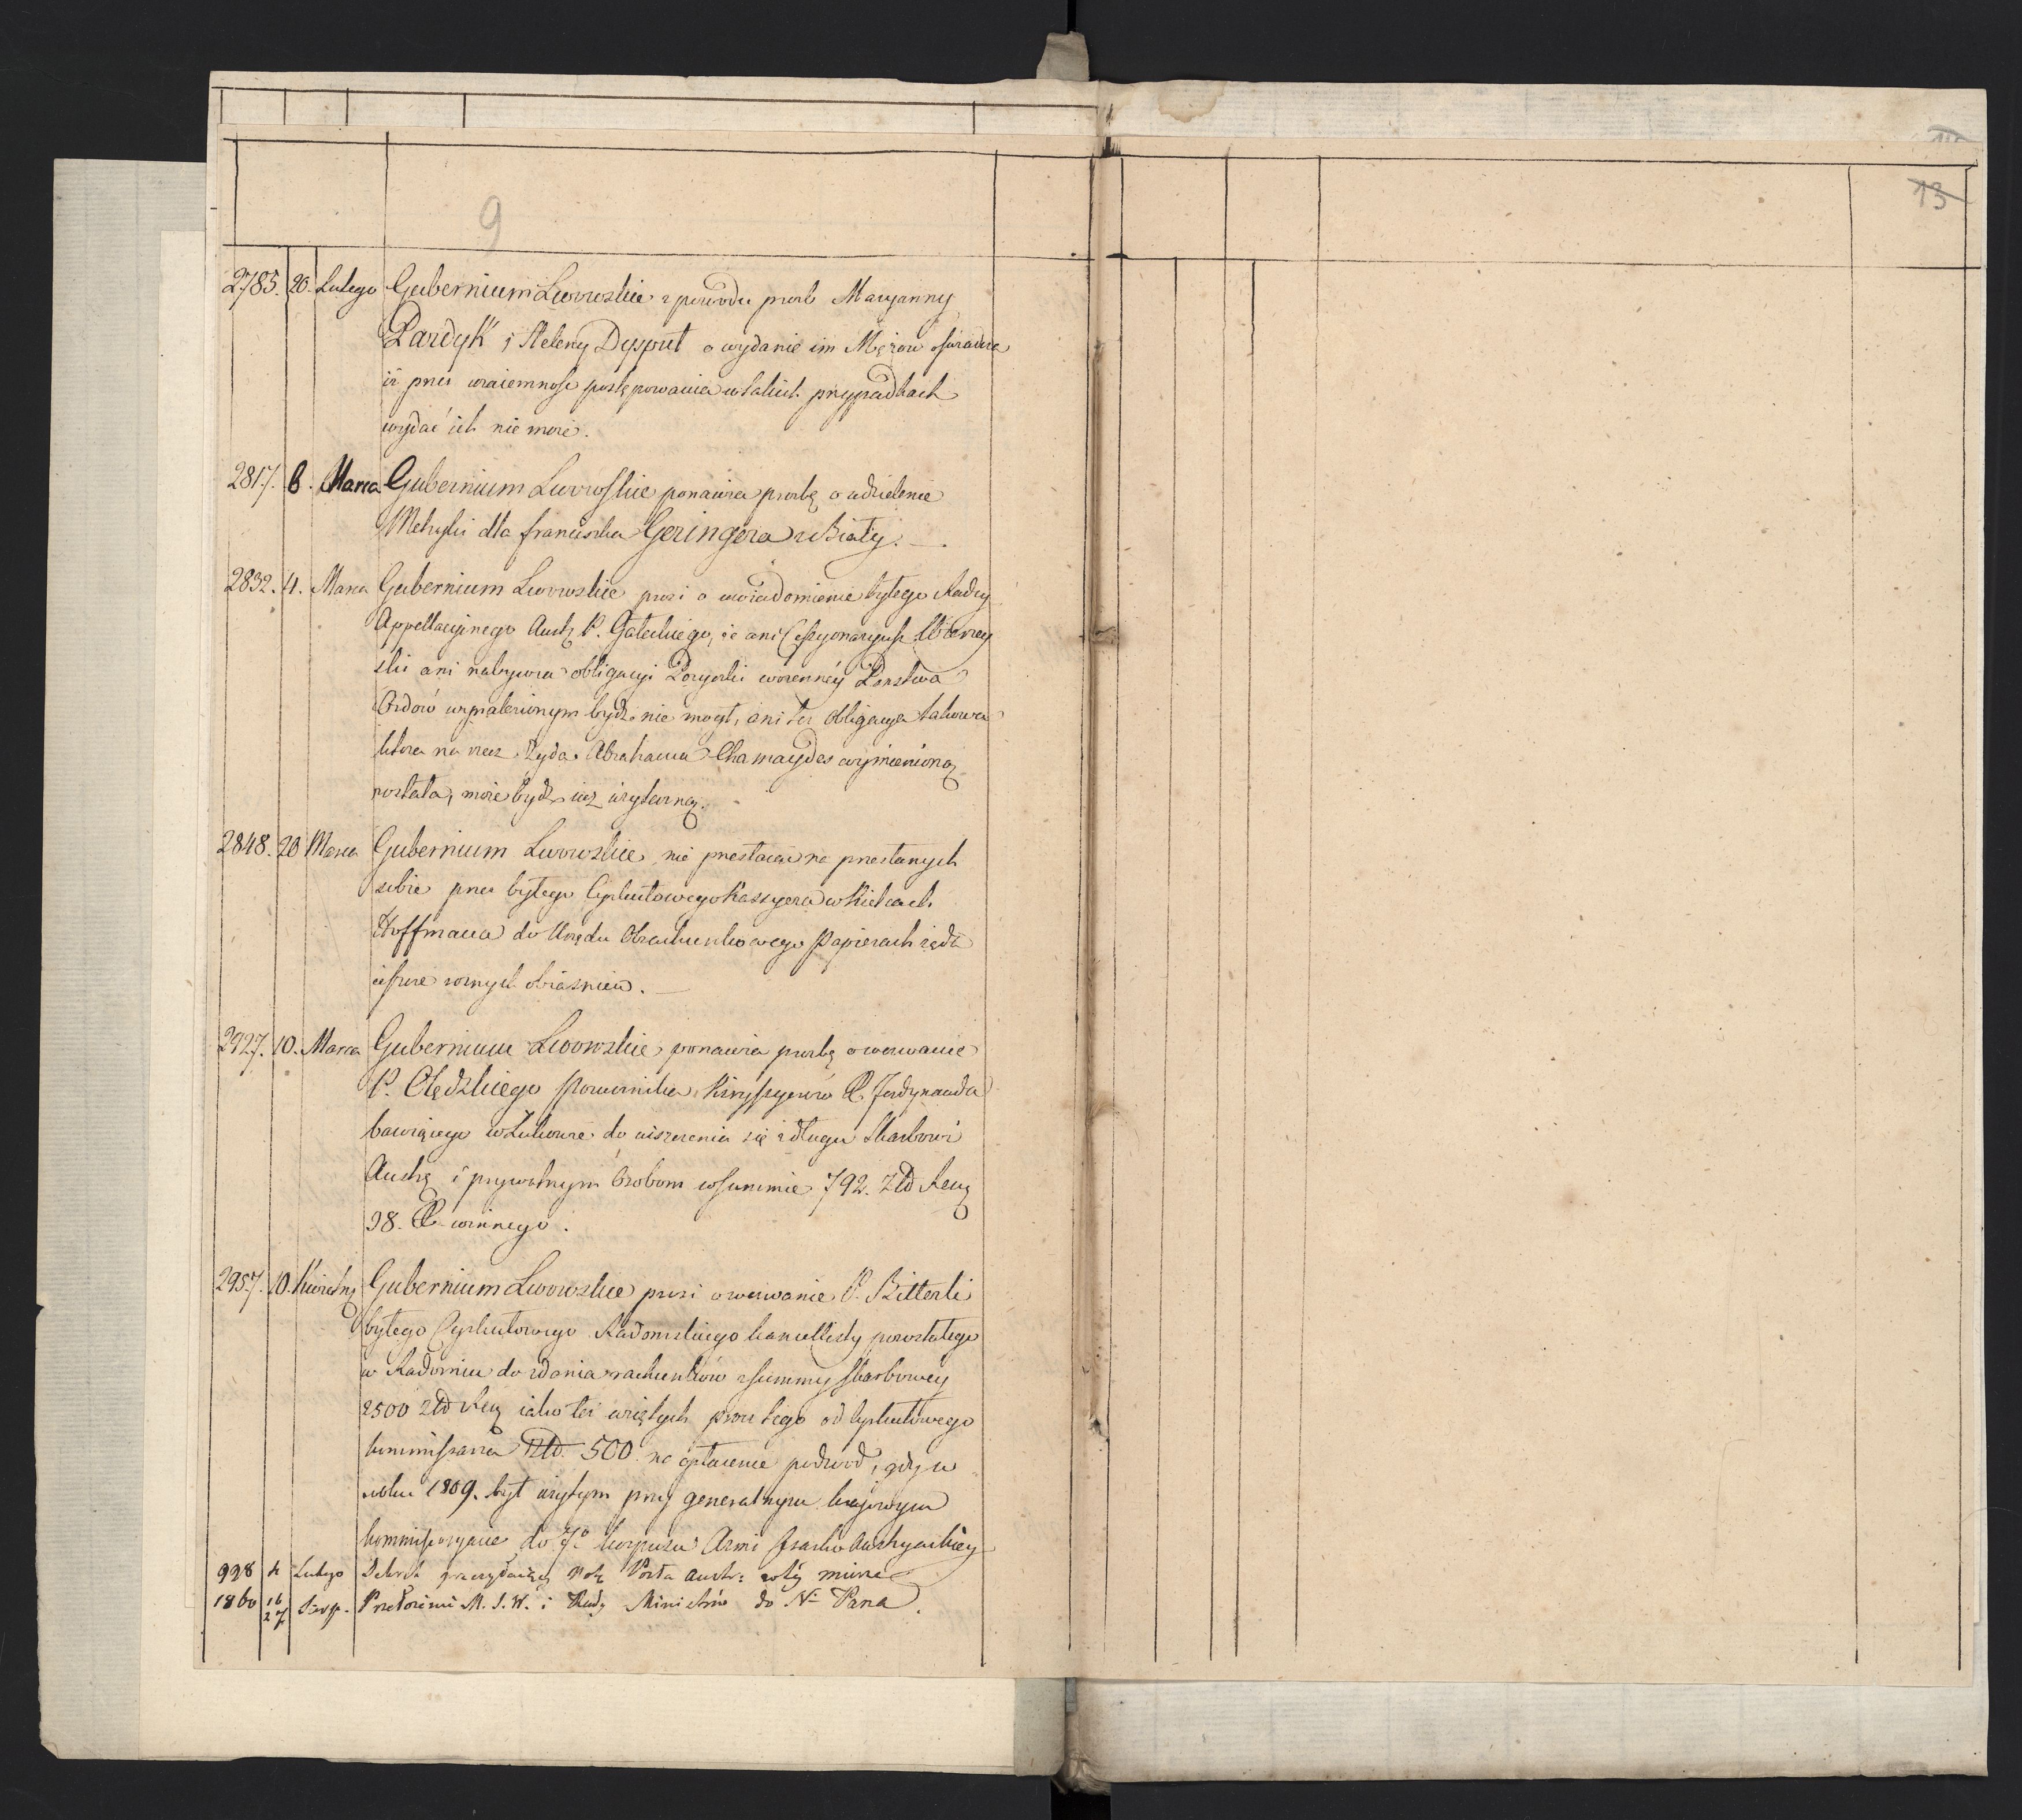 13
9
2785. 20. Lutego Gubernium Lwowskie z powodu prosb Maryanny
Pazdyk i Heleny Dysput o wydanie im Mężow oswiadcza
iż przez wzaiemnosc postępowania w takich przypadkach
wydać ich nie może.
2817. 6. Marca Gubernium Lwowskie ponawia prosbę o udzielenie
Metryki dla franciszka Geringera z Biały.
2832. 4. Marca Gubernium Lwowskie prosi o uwiadomienie byłego Radcy
Appellacyjnego Austr P. Gałeckiego, że ani Cessyonaryusz
ski ani nabywca obligacyi Pożyczki woienney Panstwa
bydź nie mogł, ani też obligacya takowa
ktora na rzecz Żyda Abrahama Chamaydes wymieniona
została, może bydź iuż
2848. 20 Marca Gubernium Lwowskie nie przestaiąc na przesłanych
sobie przez byłego Cyrkułowego Kassyera w Kielcach
Hoffmana do Urzędu Obrachunkowego Papierach żąda
ieszcze rożnych obiasnien.
2927. 10. Marca Gubernium Lwowskie ponawia prosbę o wezwanie
P. Olędzkiego Porucznika Kiryssyerów X. Ferdynanda
bawiącego w Łukowie do uiszczenia się z długu Skarbowi
Austrę i prywatnym Osobom w summie 792. Złd Reuz
38. X winnego.
2957. 10. Kwietnę Gubernium Lwowskie prosi o wezwanie P. Bitterli
byłego Cyrkułowego Radomskiego kancellisty pozostałego
w Radomiu do zdania rachunków z summy skarbowey
2500 Złd Reuz iako też wziętych przez tego od Cyrkułowego
kommissarza Złd. 500 na opłacenie podwod, gdy w
roku 1809. był użytym przy generalnym kraiowym
kommissaryacie do 7o korpusu Armi Cesarsko Austryackiey
998 4 Lutego Dekret Notę Posła Austr: w tey mierze
1860 16/27 Sierp. Przełożenie M. S. W. i Rady Ministrów do N. Pana.